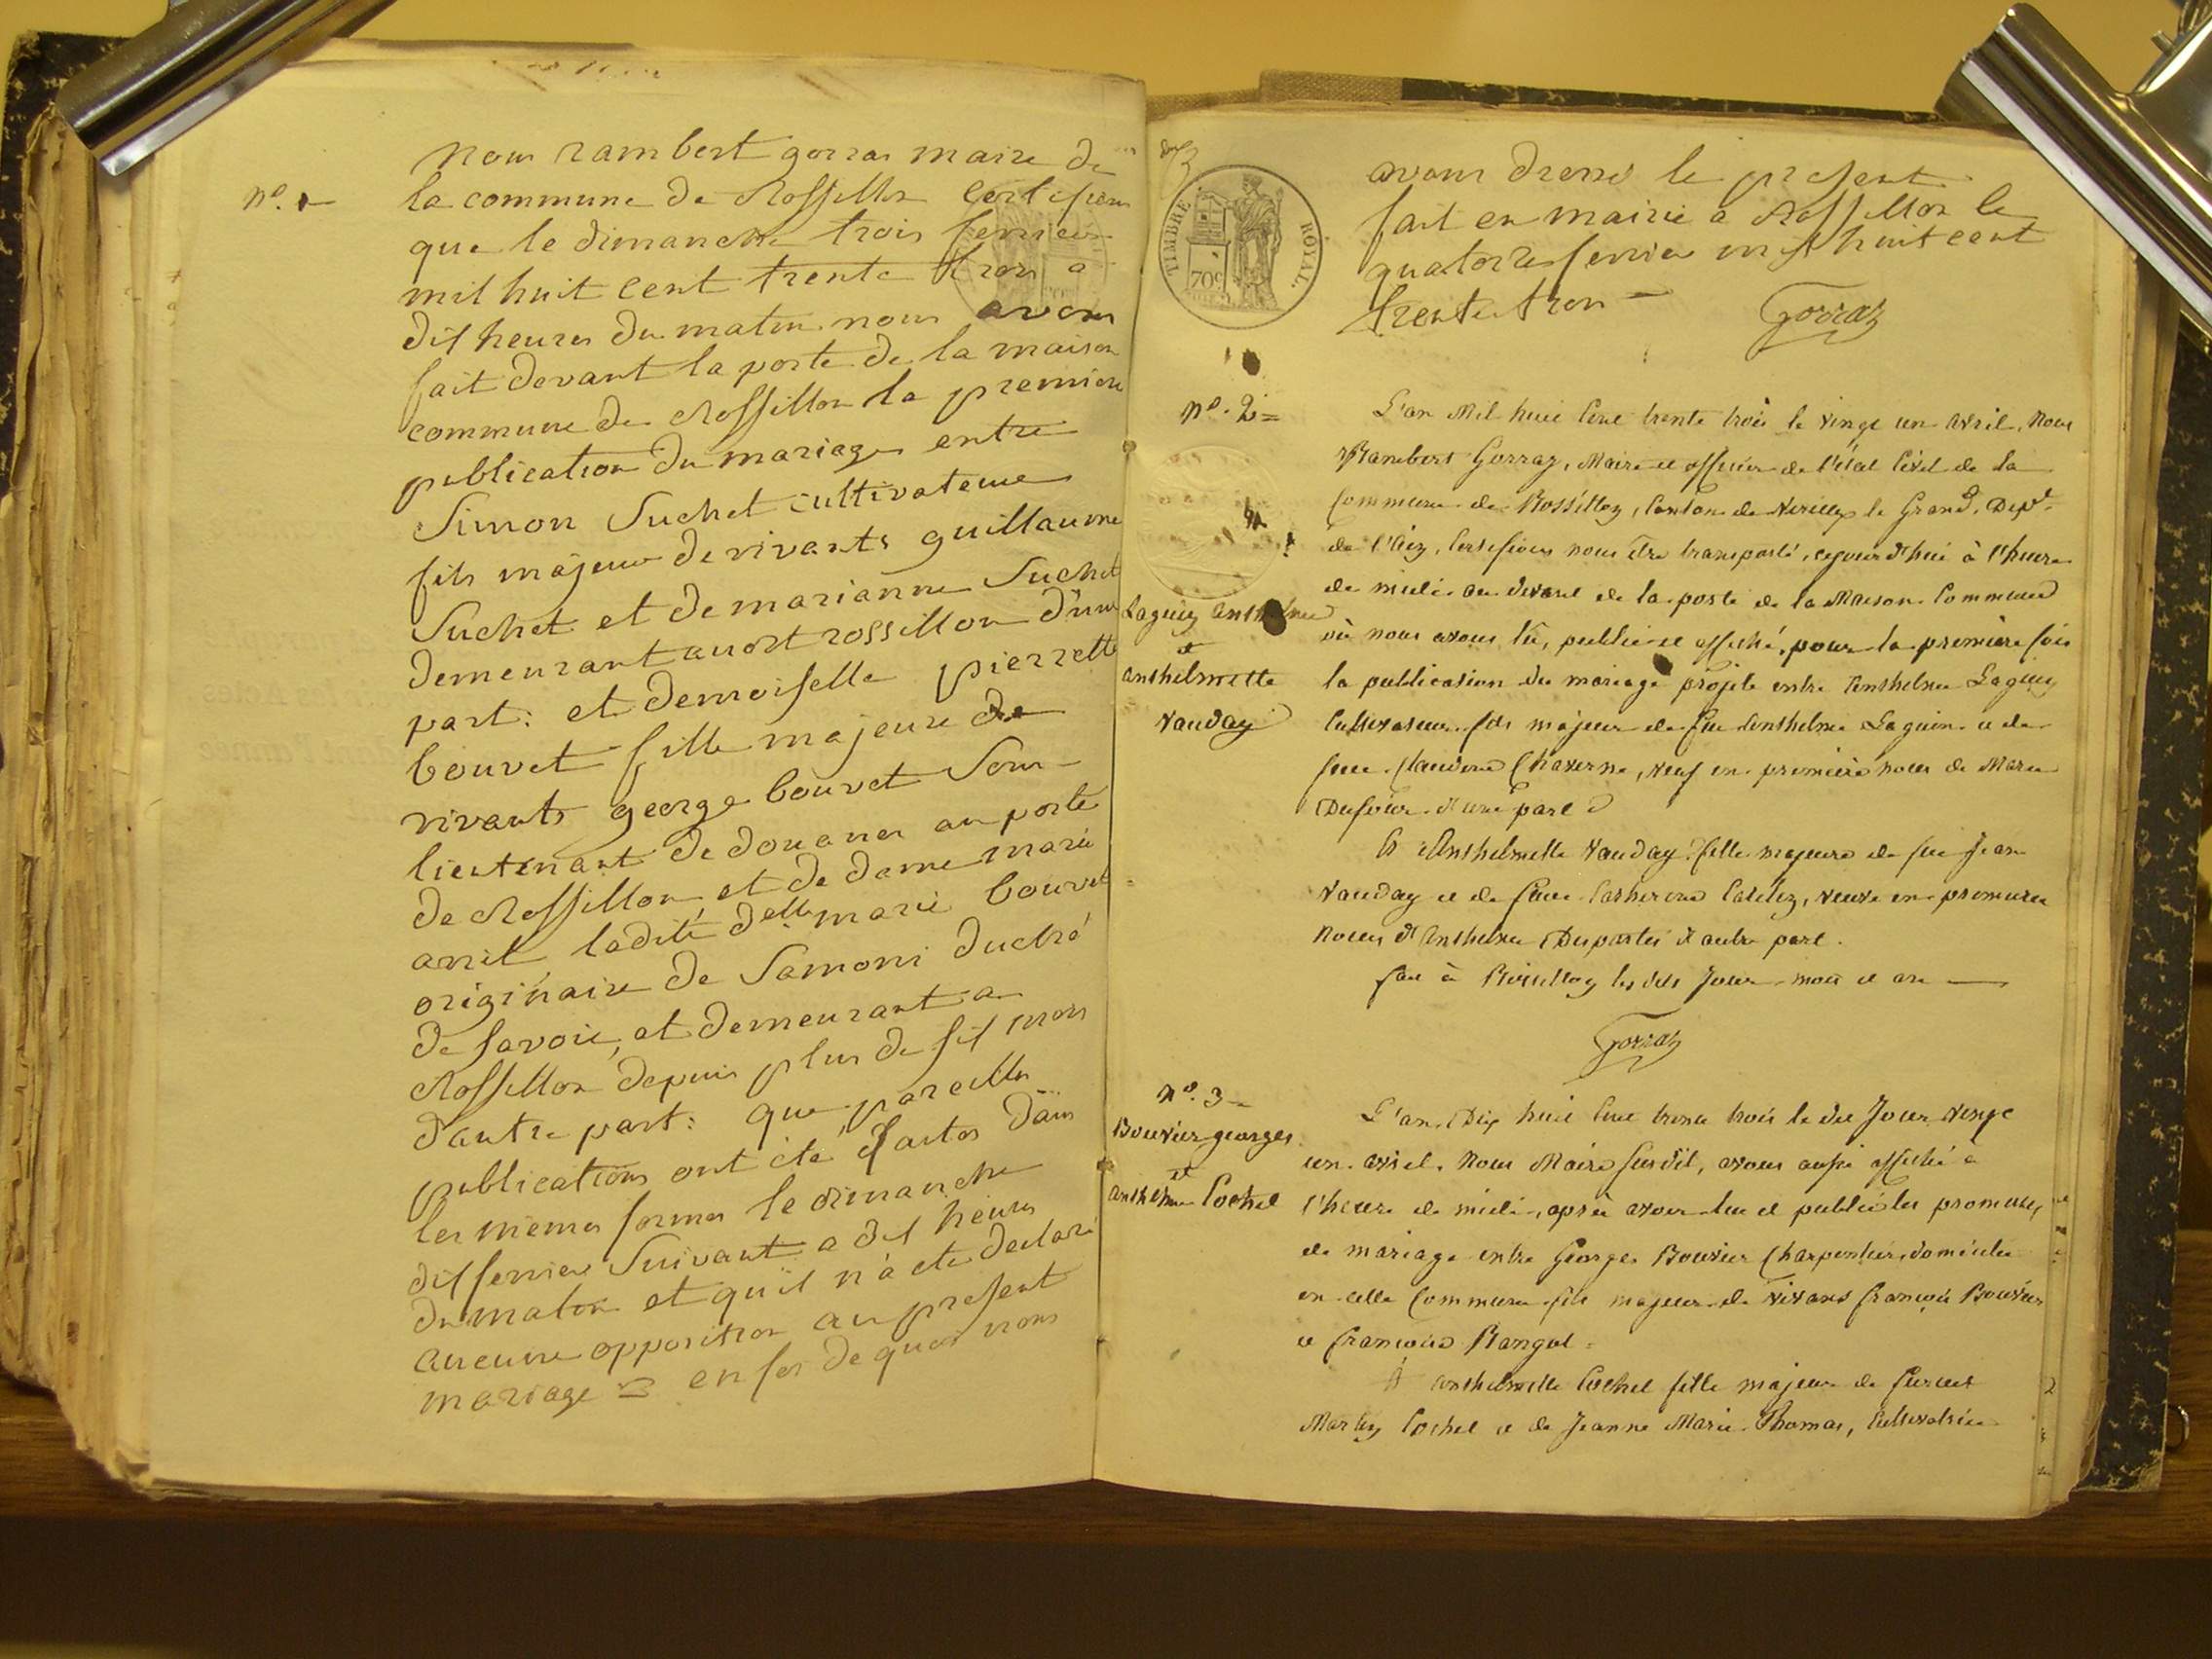 nº. 1
nous rambert gorras maire de
la commune de Rossillon certifions
que le dimanche trois fevrier
mil huit cent trente trois a
dix heures du matin nous avons
fait devant la porte de la maison
commune de Rossillon la premiere
publication du mariage entre
Simon Suchet cultivateur
fils majeur de vivants guillaume
Suchet et de marianne Suchet
demeurant audit rossillon d'une
part: et demoiselle pierrette
bouvet fille majeure de
vivants george bouvet Sous-
lieutenant de douanes au poste
de Rossillon, et de dame marie
anil, ladite delle marie bouvet
originaire de Samoni duché
de Savoie, et demeurant a
Rossillon depuis plus de six mois
d'autre part: que pareilles
publications ont été faites dans
les memes formes le dimanche
dix fevrier Suivant a dix heures
du matin et qu'il n'a ete declaré
aucune opposition au present
mariage = en foi de quoi nous
TIMBRE ROYAL.
70c
avons dressé le present
fait en mairie a Rossillon le
quatorze fevrier mil huit cent
trente trois =
Gorraz
nº. 2 =
Laguin Anthelme
et
anthelmette
Vauday
L'an Mil huit Cent trente trois le vingt un Avril, Nous
Rambert Gorraz, Maire et officier de l'état Civil de la
Commune de Rossillon, Canton de Virieux le Grand, Dépt.
de l'Ain, Certifions nous être transporté, cejourd'hui à l'heure
de midi au devant de la porte de la Maison Commune
où nous avons lû, publié et affiché, pour la première fois
la publication du mariage projeté entre Anthelme Laguin
Cultivateur fils majeur de feu Anthelme Laguin et de
feue Claudine Chaverne, veuf en première noces de Marie
Dufour d'une part
Et Anthelmette Vauday fille majeure de feu Jean
Vauday et de feue Catherine, veuve en premières
Noces d'Anthelme Desportes d'autre part.
fait à Rossillon les dits Jour mois et an
Gorraz
nº. 3 =
Bouvier georges
et
anthelme Cochet
L'an Dix huit Cent trente trois le dit Jour vingt
un avril, Nous Maire susdit, avons aussi affiché à
l'heure de midi, après avoir lu et publié les promesses
de mariage entre Georges Bouvier Charpentier, domicilié
en cette Commune fils majeur de vivans françois Bouvier
et françoise
Et anthelmette Cochet fille majeure de
Cochet et de Jeanne Marie Thomas, Cultivatrice